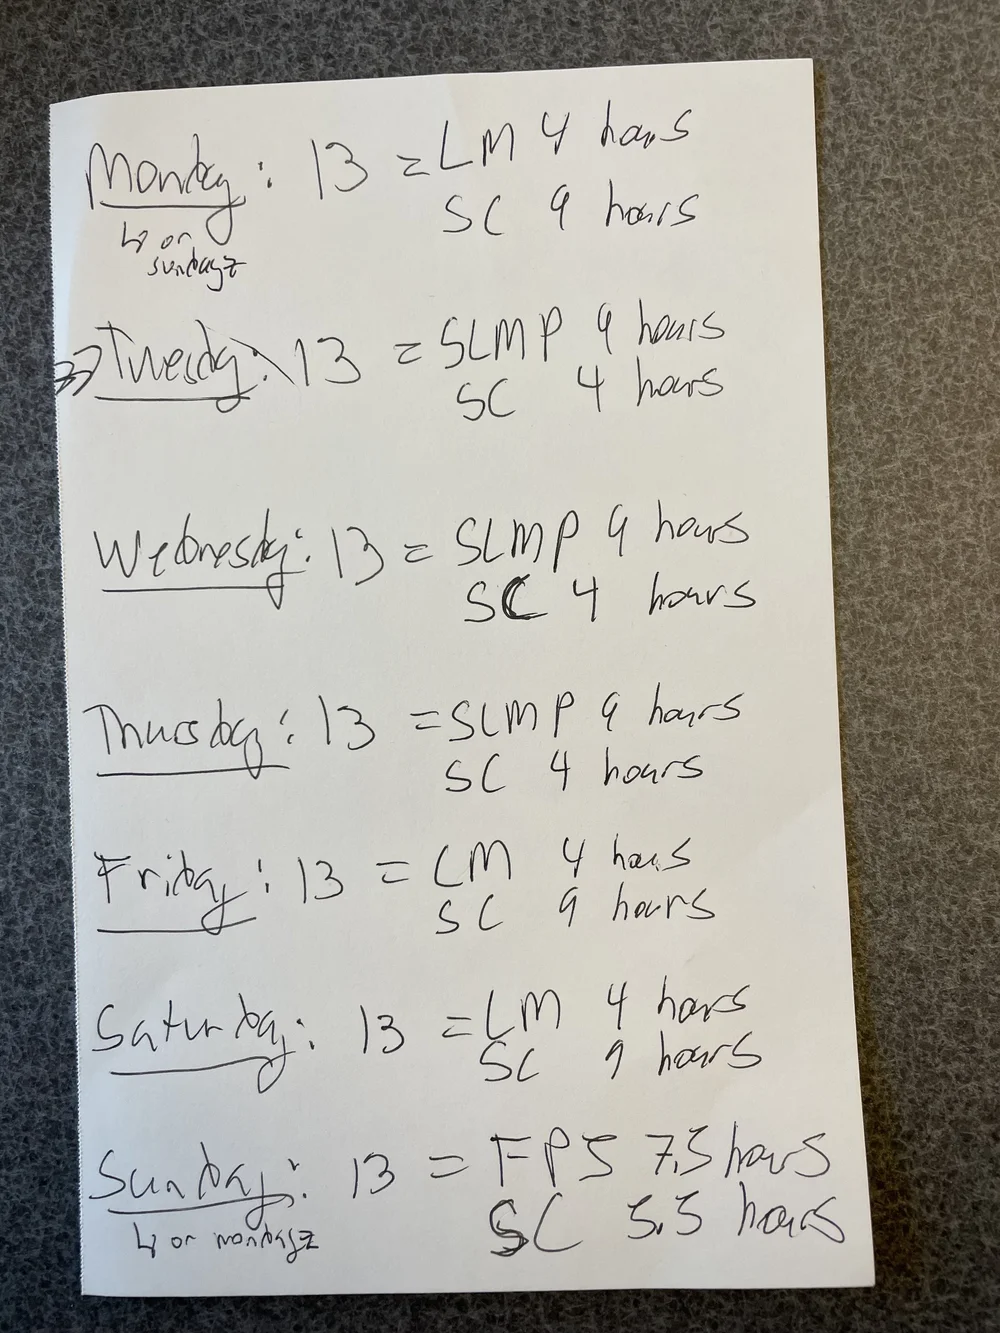 Monday: 13 = LM 4 hours
SC 9 hours
↳ or
sundayz
Tuesday: 13 = SLMP 9 hours
SC 4 hours
Wednesday: 13 = SLMP 9 hours
SC 4 hours
Thursday: 13 = SLMP 9 hours
SC 4 hours
Friday: 13 = LM 4 hours
SC 9 hours
Saturday: 13 = LM 4 hours
SC 9 hours
Sunday: 13 = FPS 7.5 hours
SC 5.5 hours
↳ or mondayz